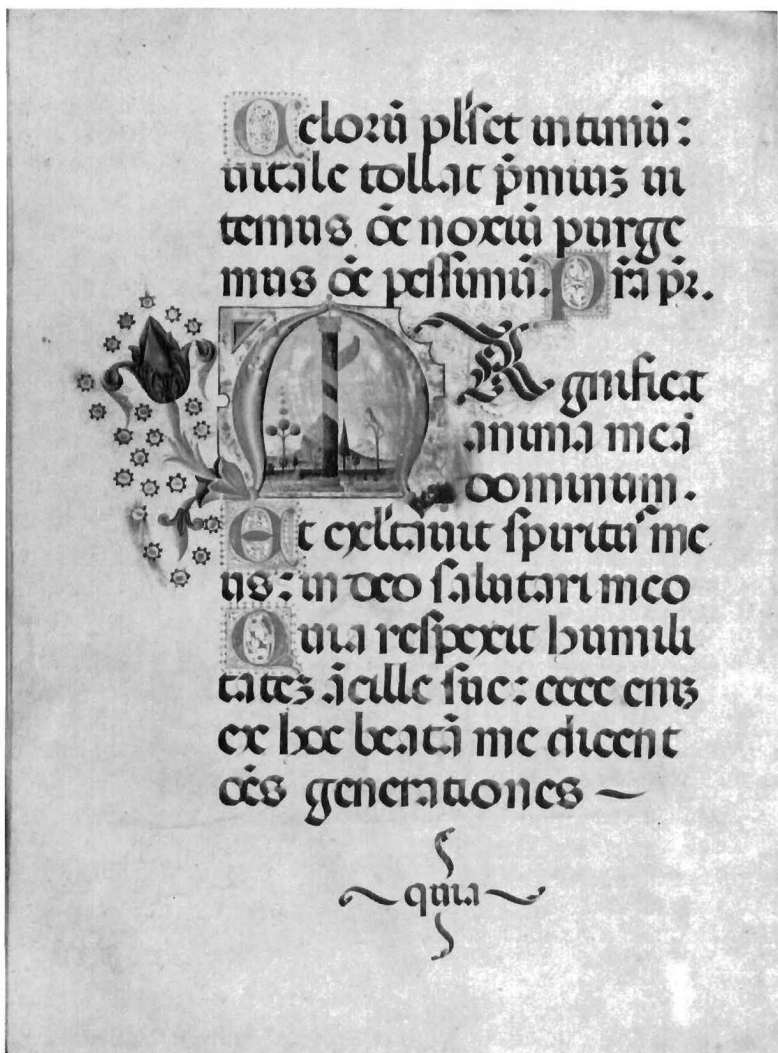 Celorū pl'set intimū:
vitale tollat p̄miuꝫ vi
temus oē noxiū purge
mus oē pessimū. Pr̄a pꝛ̄.
MAgnificat
anima meā
dominum.
Et exl'tauit spiritus me
us: in deo salutari meo
Quia respexit humili
tateꝫ ācille sue: ecce eniꝫ
ex hoc beatā me dicent
oēs generationes ~
~ quia ~